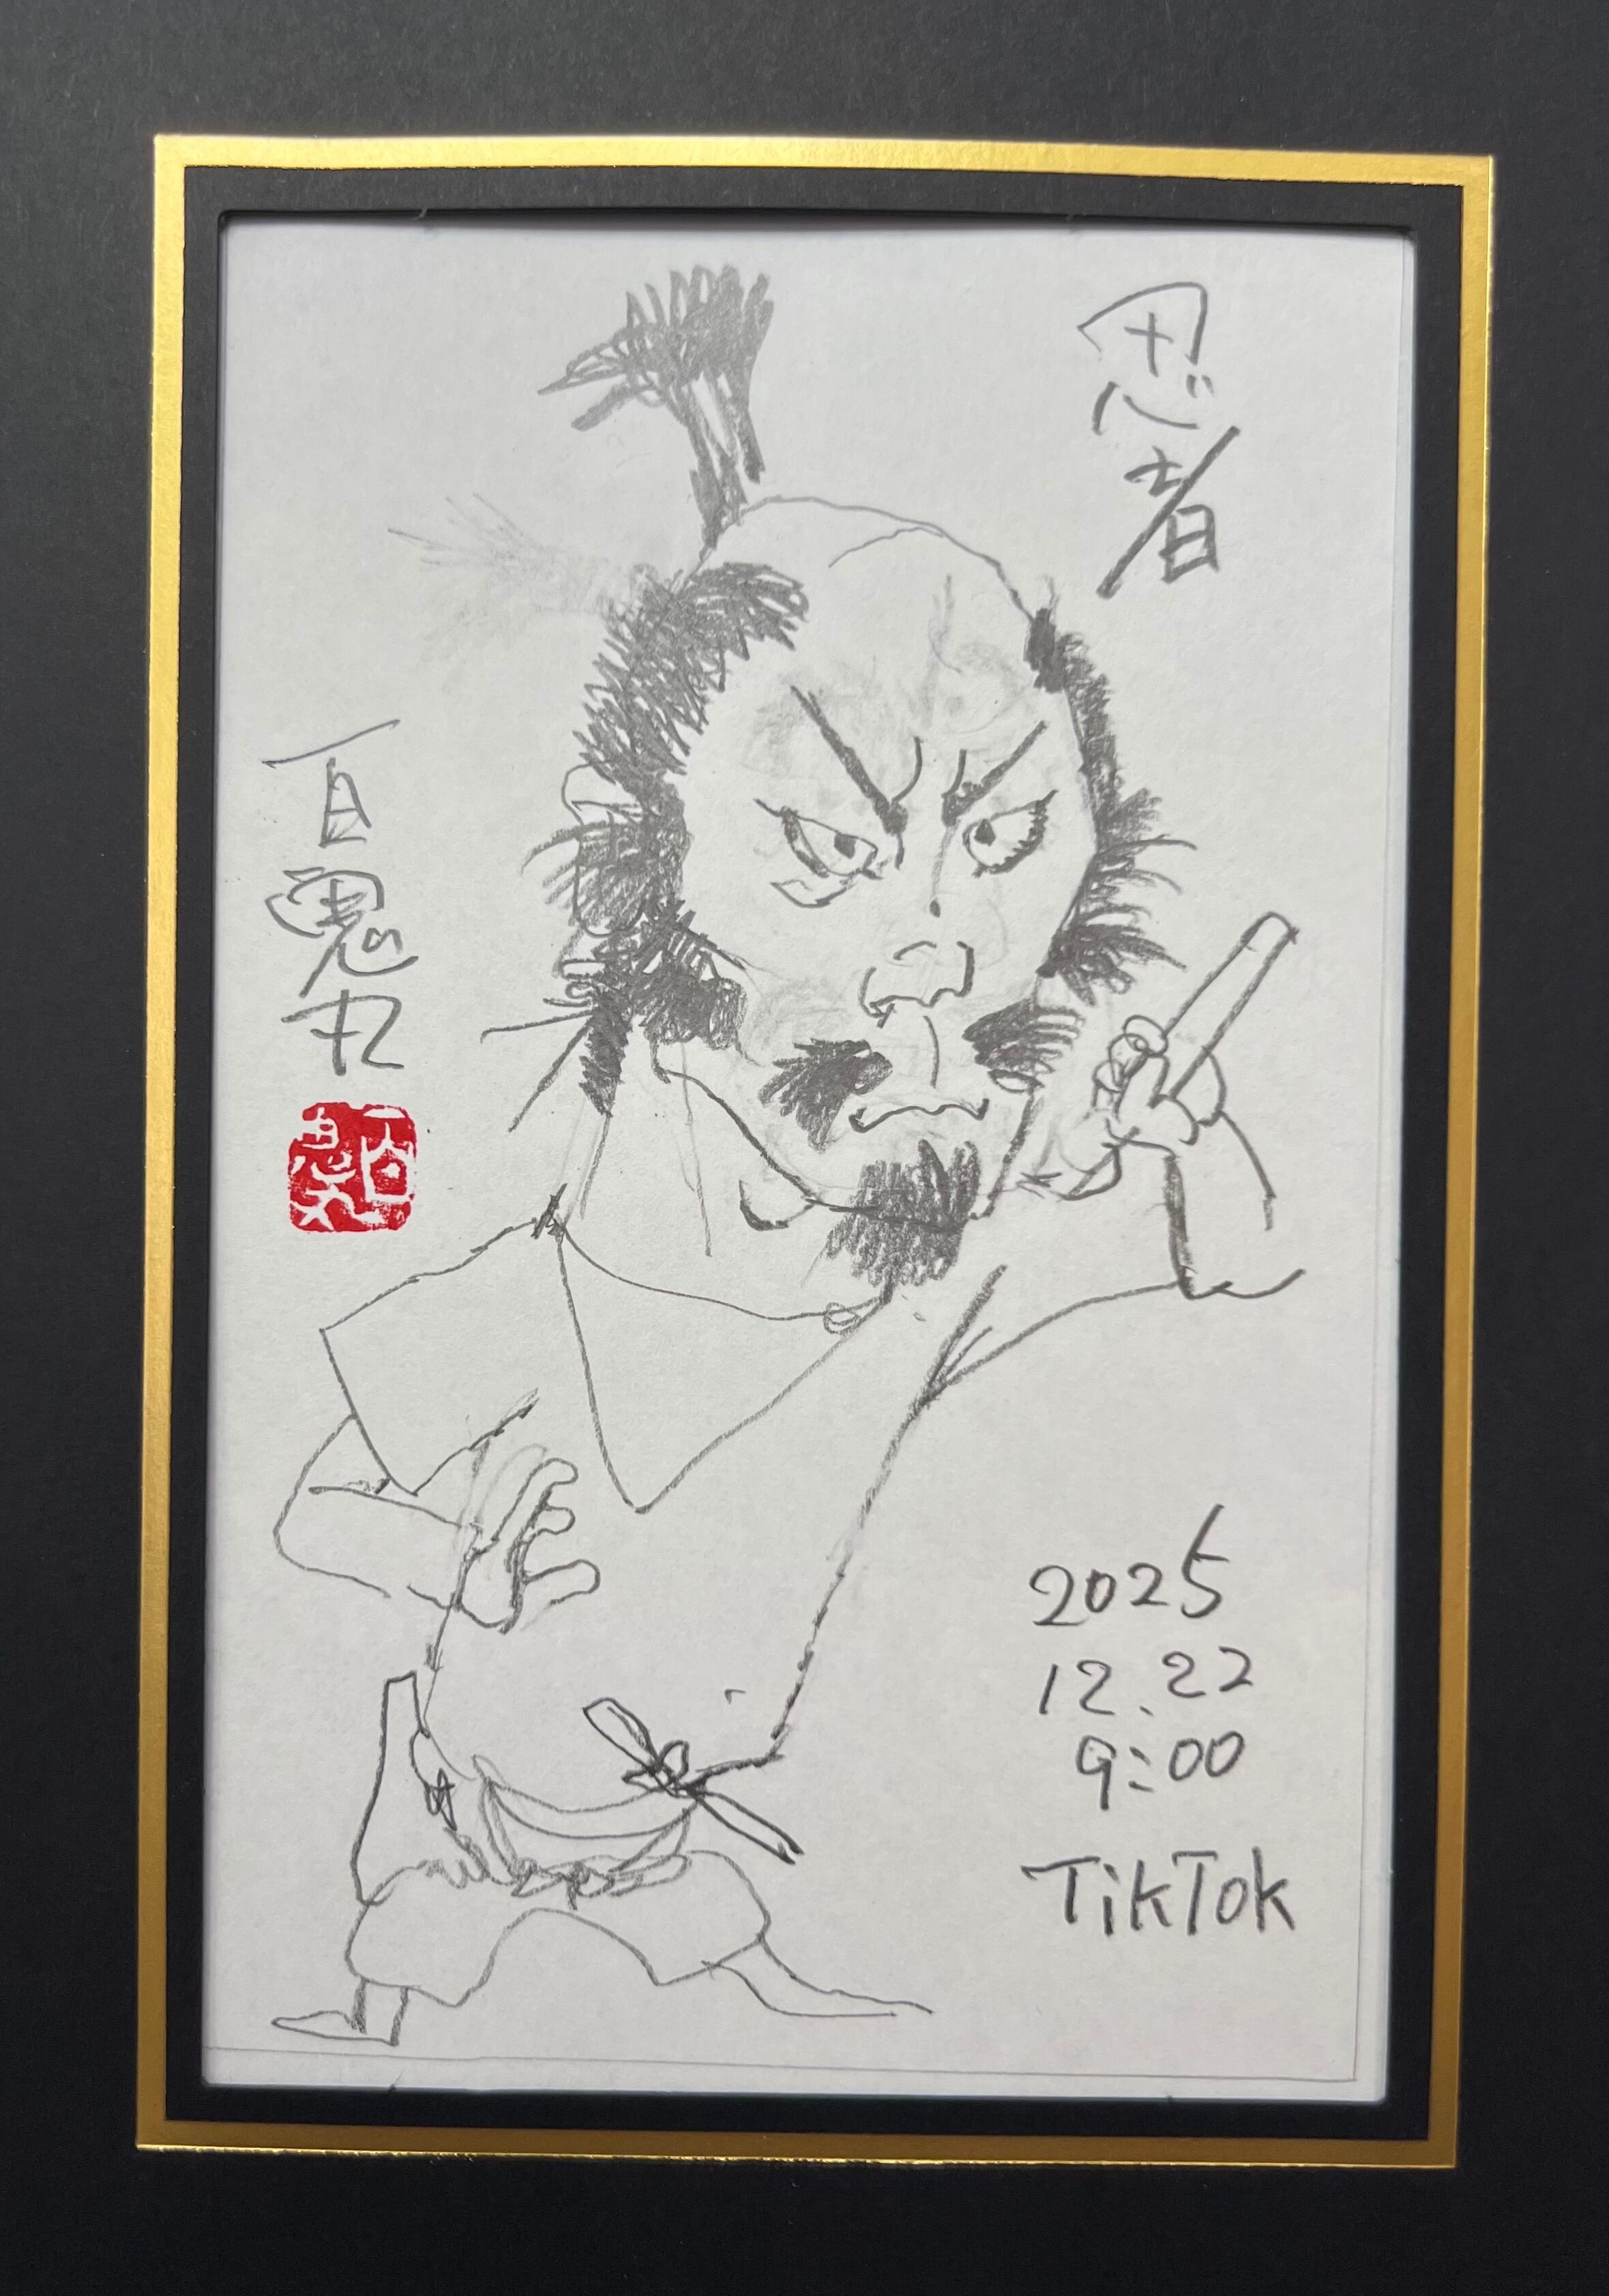 忍者
百鬼丸
百鬼丸
2025
12.22
9:00
TikTok